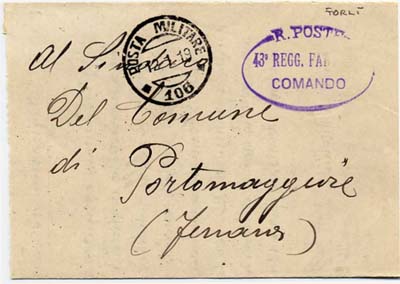 FORLÌ
POSTA MILITARE
12.1.19
106
R. POSTE
43° REGG. FAN
COMANDO
Al Sindaco
Del Comune
di
Portomaggiore
(Ferrara)